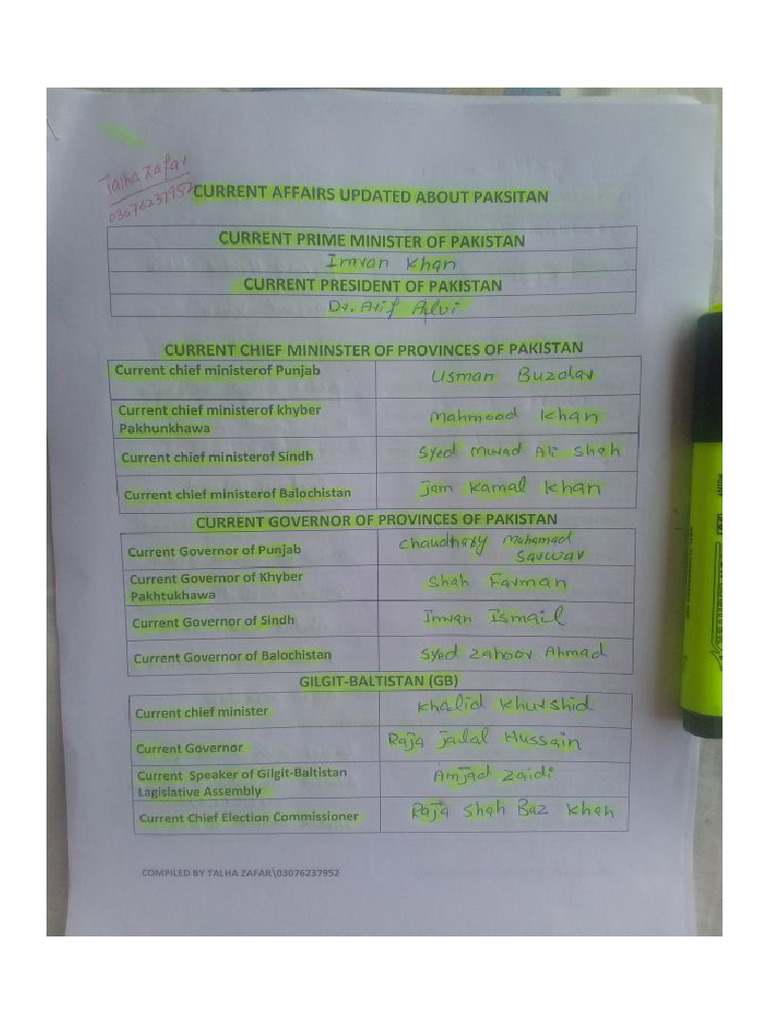 Talha Zafar
03076237952
CURRENT AFFAIRS UPDATED ABOUT PAKSITAN
CURRENT PRIME MINISTER OF PAKISTAN
Imran Khan
CURRENT PRESIDENT OF PAKISTAN
Dr. Arif Aplvi
CURRENT CHIEF MININSTER OF PROVINCES OF PAKISTAN
Current chief ministerof Punjab
Usman Buzdar
Current chief ministerof khyber
Pakhunkhawa
Mahmood Khan
Current chief ministerof Sindh
Syed Murad Ali Shah
Current chief ministerof Balochistan
Jam Kamal Khan
CURRENT GOVERNOR OF PROVINCES OF PAKISTAN
Current Governor of Punjab
Chaudhary Mohamad
Sarwar
Current Governor of Khyber
Pakhtukhawa
Shah Farman
Current Governor of Sindh
Imran Ismail
Current Governor of Balochistan
Syed Zahoor Ahmad
GILGIT-BALTISTAN (GB)
Current chief minister
Khalid Khurshid
Current Governor
Raja Jalal Hussain
Current Speaker of Gilgit-Baltistan
Lagislative Assembly
Amjad Zaidi
Current Chief Election Commissioner
Raja Shah Baz Khan
COMPILED BY TALHA ZAFAR\03076237952